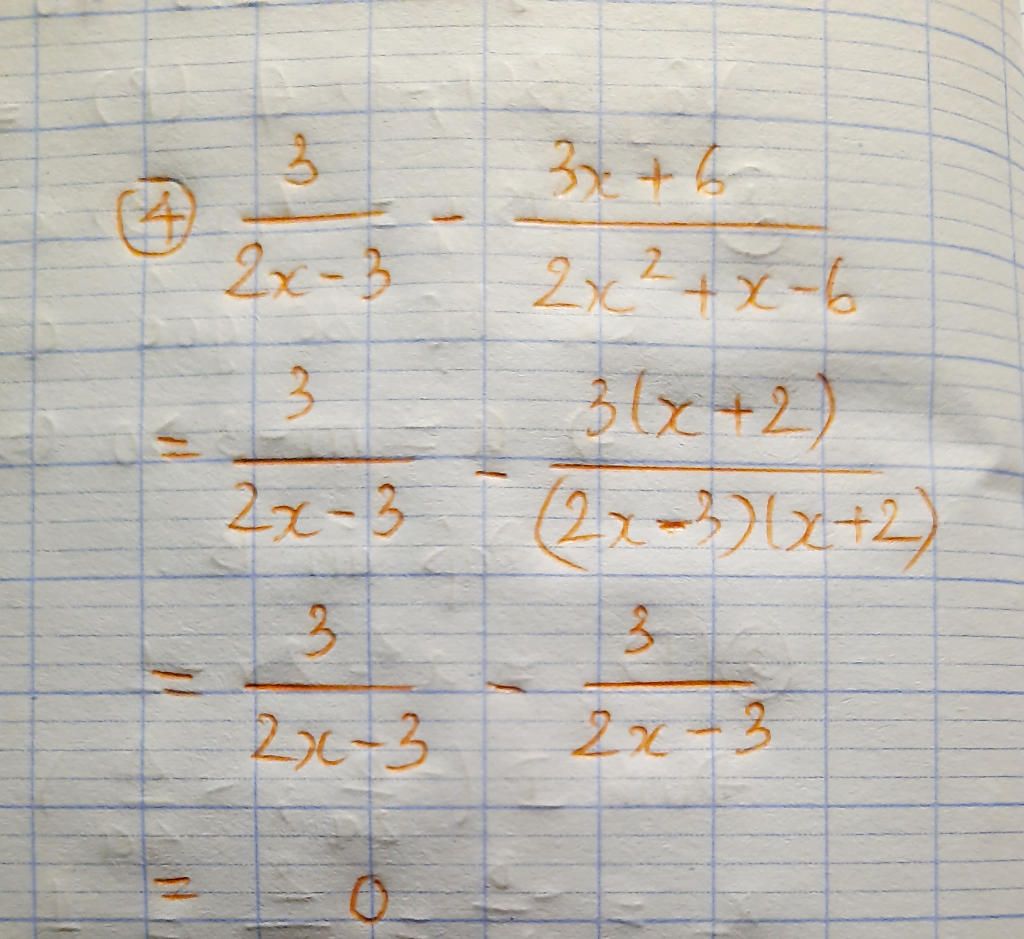 ④ 3/(2x-3) - (3x+6)/(2x²+x-6)
= 3/(2x-3) - 3(x+2)/((2x-3)(x+2))
= 3/(2x-3) - 3/(2x-3)
= 0